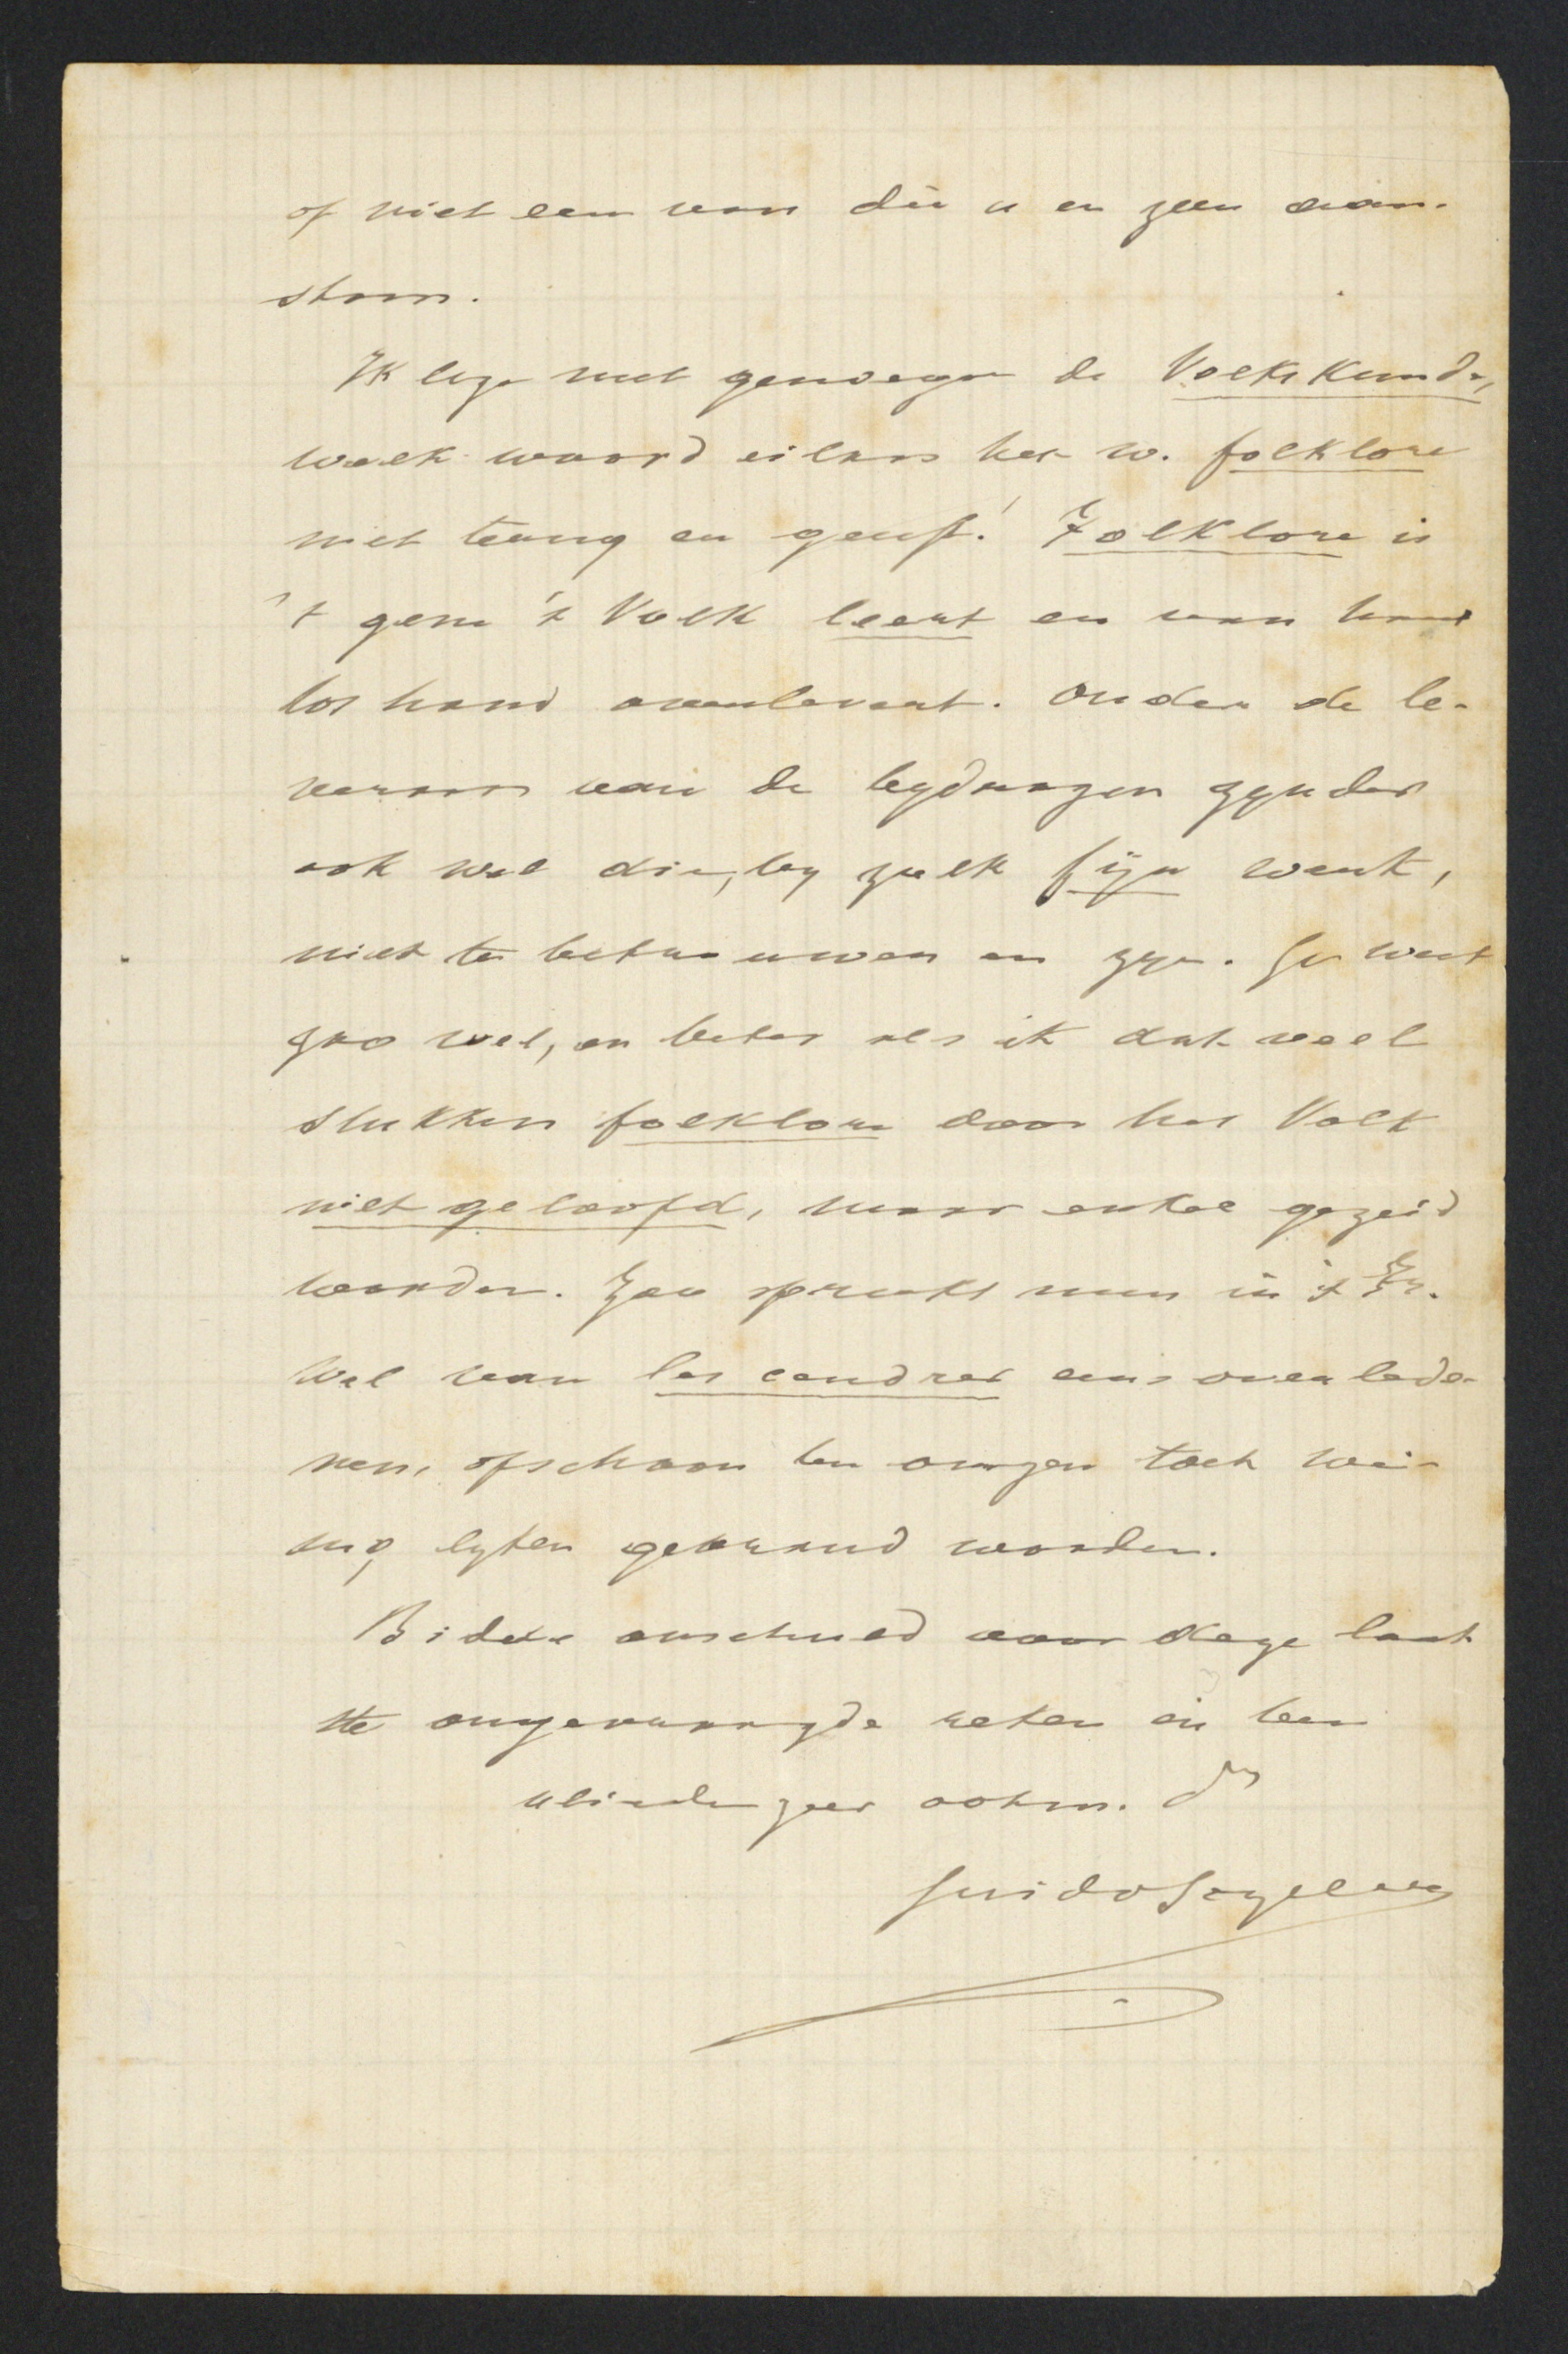 of niet een van die u en zeen aan-
staan.
Ik leze met genoegen de Volkskunde,
welk woord eilaas het w. folklore
niet teenig en geeft! Folklore is
't gene 't Volk leert en van hand
tot hand overleveert. Onder de le-
veraars van de bydragen zynder
ook wel die, by zulk fijn werk,
niet te betrouwen en zyn. Gy weet
zoo wel, en beter als ik dat veel
stukken folklore door het Volk
niet geloofd, maar enkel gezeid
worden. Zoo spreekt men in 't Fr.
wel van les cendres eens overlede-
nen, ofschoon ten onzen toch wei-
nig lyken gebrand worden.
Bidde onschuld voor deze laat-
ste ongevraagde reken en ben
ulieden zeer ootm. dr
Guido Gezelle